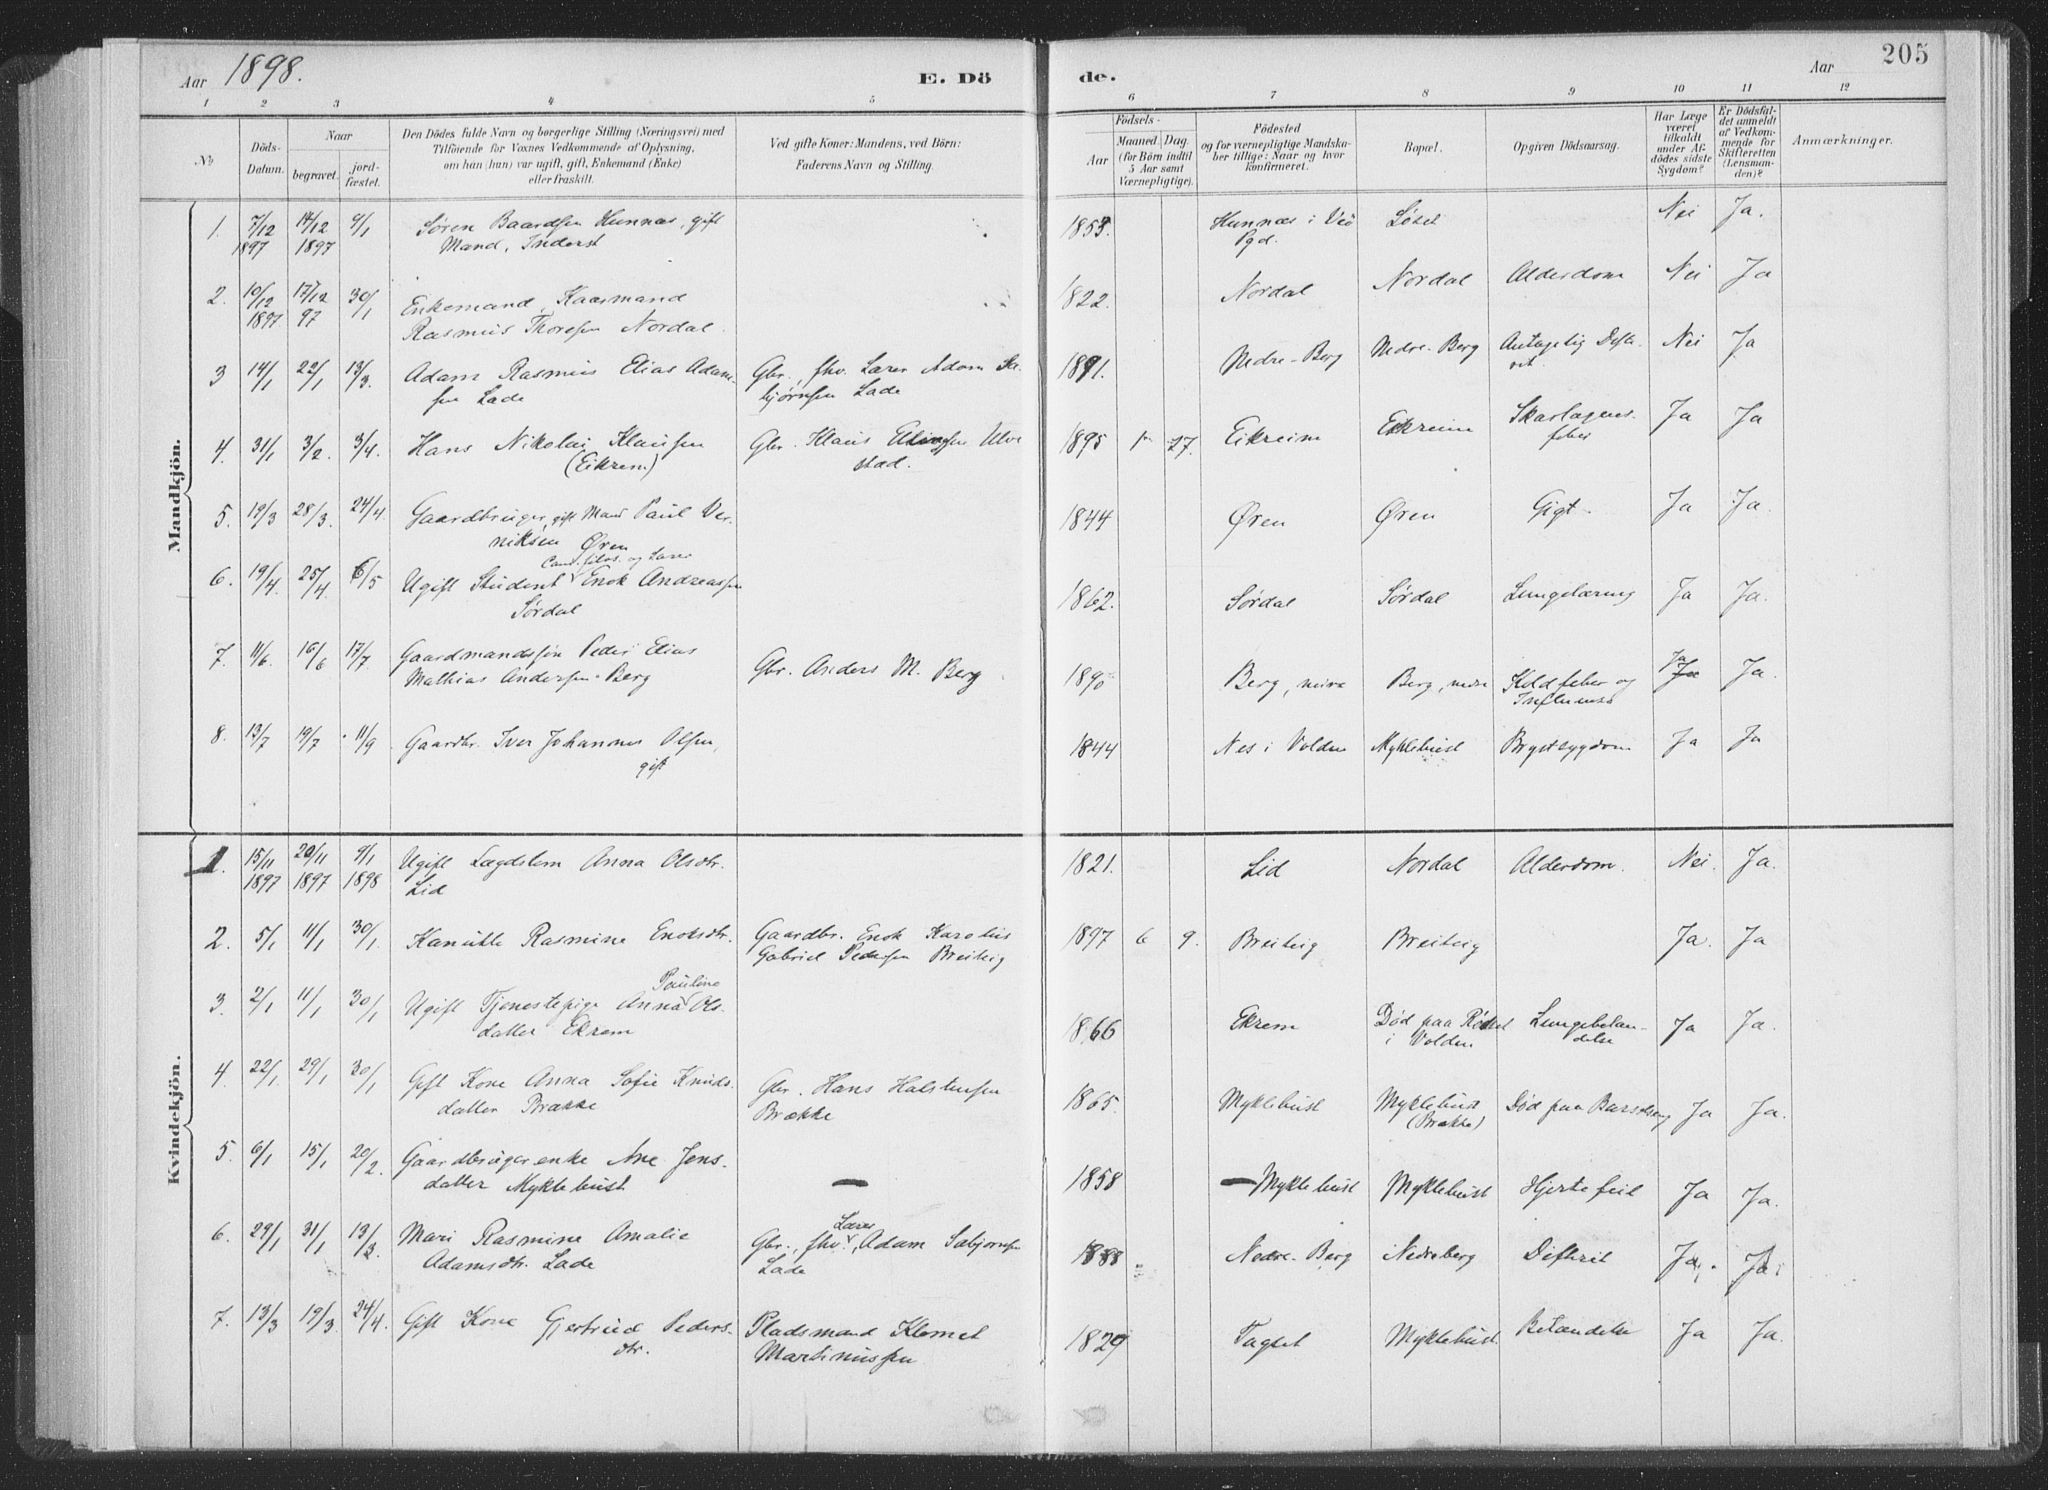 Aar 1898.
E. Dö
de.
Aar
205
1 2 3 4 5 6 7 8 9 10 11 12
No
Döds-
Datum.
Naar
begravet.
jord-
fæstet.
Den Dödes fulde Navn og borgerlige Stilling (Næringsvei) med
Tilföiende for Voxnes Vedkommende af Oplysning,
om han (hun) var ugift, gift, Enkemand (Enke)
eller fraskilt.
Ved gifte Koner: Mandens, ved Börn:
Faderens Navn og Stilling.
Födsels-
Aar
Maaned. Dag.
(for Börn indtil
5 Aar samt
Værnepligtige).
Födested
og for værnepligtige Mandska-
ber tillige: Naar og hvor
konfirmeret.
Bopæl.
Opgiven Dödsaarsag.
Har Læge
været
tilkaldt
under Af-
dödes sidste
Sygdom?
Er Dödsfal-
det anmeldt
af Vedkom-
mende for
Skifteretten
(Lensman-
den)?
Anmærkninger.
Mandkjön.
1. 7/12 14/12 9/1 Søren Baardsen Hunnæs, gift 1853. Hunnæs i Veö Løset Nei Ja.
1897 1897 Mand, Inderst Pgd.
2. 10/12 17/12 30/1 Enkemand, Kaarmand 1822. Nordal Nordal Alderdom Nei Ja
1897 97 Rasmus Thoresen Nordal.
3 14/1 22/1 13/3. Adam Rasmus Elias Adam- Gbr. fhv. Lærer Adam Sa- 1891. Nedre-Berg Nedre-Berg Antagelig Difte- Nei Ja
sen Lade bjørnsen Lade rit.
4. 31/1 3/2. 3/4. Hans Nikolai Klausen Gbr. Klaus Ulve 1895 1 27. Eikreim Eikreim Skarlagens- Ja Ja
(Eikrem) stad. feber
5. 19/3 28/3. 24/4 Gaardbruger, gift Mand Paul Ver- 1844 Øren Øren Gigt Ja Ja.
niksen Øren
Cand. filos. og Lærer
6. 19/4. 25/4 6/5 Ugift Student Enok Andreassen 1862. Sørdal Sørdal Lungetæring Ja Ja.
Sørdal
7. 11/6. 16/6 17/7 Gaardmandssøn Peder Elias Gbr. Anders M. Berg 1890 Berg, nedre Berg, nedre Koldfeber og Ja Ja.
Mathias Andersen Berg Influensa Ja
8. 13/7 19/7 11/9 Gaardbr. Iver Johannes Olsen, 1844 Nes i Volden Myklebust Brystsygdom Ja Ja
gift
Kvindekjön.
1. 15/11 20/11 9/1 Ugift Lægdslem Anna Olsdtr. 1821. Lid Nordal Alderdom. Nei. Ja.
1897 1897 1898 Lid
2. 5/1 11/1 30/1. Kanutte Rasmine Enoksdtr. Gaardbr. Enok Karolius 1897 6 9. Breiteig Breiteig Ja. Ja
Gabriel Pedersen Breiteig
Pauline
3. 2/1 11/1 30/1 Ugift Tjenestepige Anna Ols- 1866 Ekrem Død paa Rødset Lungebetæn- Ja Ja.
datter Ekrem i Volden delse
4. 22/1 29/1 30/1 Gift Kone Anna Sofie Knuds- Gbr. Hans Halstensen 1865. Myklebust Myklebust Død paa Barselseng Ja Ja.
datter Brække Brække (Brække)
5. 6/1 15/1 20/2. Gaardbrugerenke Ane Jens- — 1858 — Myklebust Myklebust Hjertefeil Ja Ja.
datter Myklebust
Lærer
6. 29/1 31/1 13/3 Mari Rasmine Amalie Gbr., fhv. Adam Sabjørnsen 1888 Nedre-Berg Nedreberg Difterit Ja. Ja.
Adamsdtr. Lade Lade
7. 13/3 19/3. 24/4. Gift Kone Gjertrud Peders- Pladsmand Klemet 1829 Taglet Myklebust Betændelse Ja Ja.
dtr. Martinussen